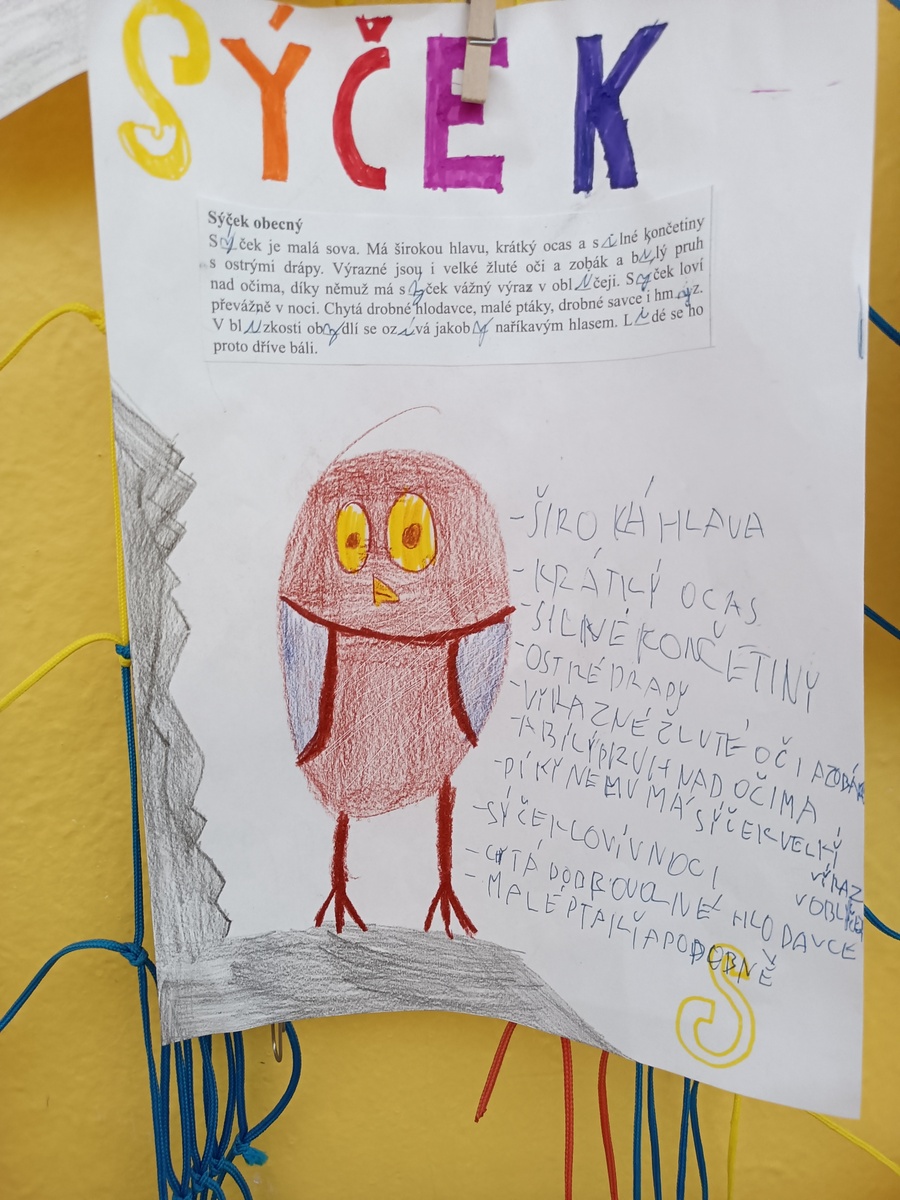 SÝČEK
Sýček obecný
Sýček je malá sova. Má širokou hlavu, krátký ocas a silné končetiny
s ostrými drápy. Výrazné jsou i velké žluté oči a zobák a bílý pruh
nad očima, díky němuž má sýček vážný výraz v obličeji. Sýček loví
převážně v noci. Chytá drobné hlodavce, malé ptáky, drobné savce i hmyz.
V blízkosti obydlí se ozívá jakoby naříkavým hlasem. Lidé se ho
proto dříve báli.
-ŠIROKÁ HLAVA
-KRÁTKÝ OCAS
-SILNÉ KONČETINY
-OSTRÉ DRAPY
-VÝRAZNÉ ŽLUTÉ OČI A ZOBÁK
-A BÍLÝ PRUH NAD OČIMA
-DÍKY NĚMU MÁ SÝČEK VELKÝ
VÝRAZ
V OBLIČEJI
-SÝČEK LOVÍ V NOCI
- HLODAVCE
-MALÉ A PODOBNĚ
S